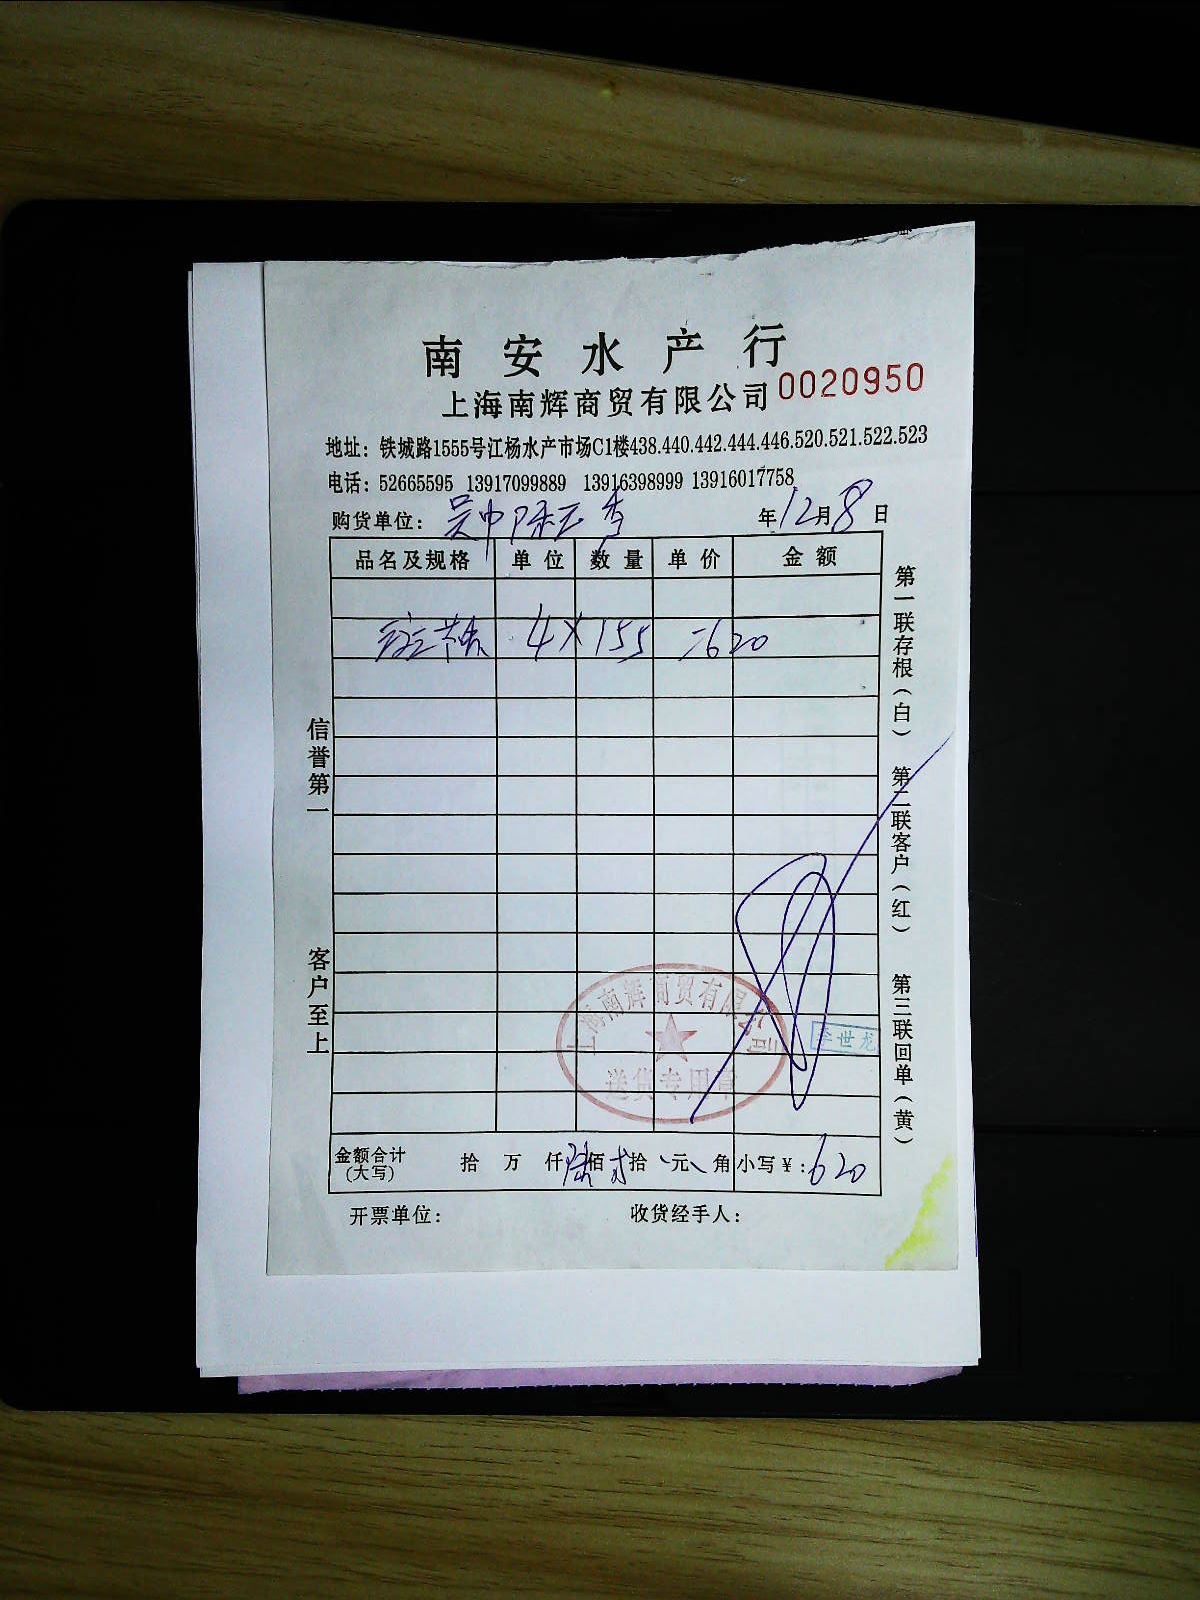 南安水产行
上海南辉商贸有限公司 0020950
地址：铁城路1555号江杨水产市场C1楼438.440.442.444.446.520.521.522.523
电话：52665595 13917099889 13916398999 13916017758
购货单位：吴中陈玉秀 年12月8日
品名及规格 单位 数量 单价 金额
4×155 =620
金额合计（大写） 拾 万 仟陆佰贰拾 元 角 小写￥：620
开票单位： 收货经手人：
信誉第一 客户至上
第一联存根（白） 第二联客户（红） 第三联回单（黄）
上海南辉商贸有限公司
送货专用章
李世龙